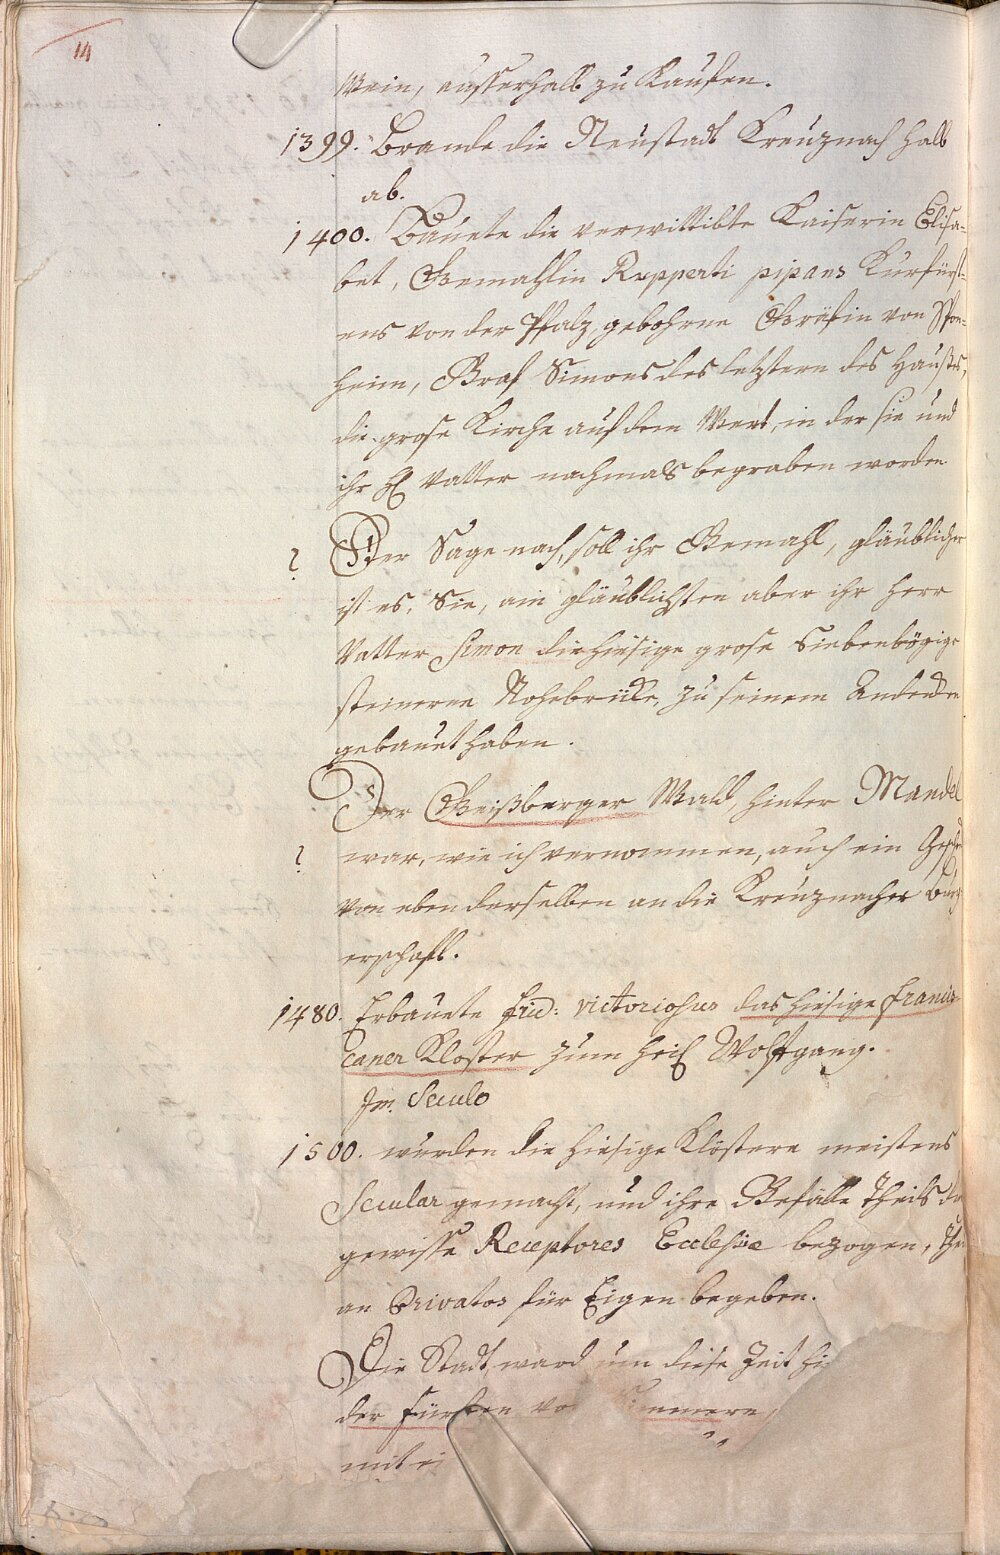 14
Wein, ausserhalb zu kaufen.
1399. Brande die Neustadt Kreuznach halb
ab.
1400. Bauete die verwittibte Kaiserin Elisa-
bet, Gemahlin Rupperti pipans Kurfürst-
ens von der Pfalz, gebohrne Gräfin von Spon-
heim, Graf Simons des letztern des Haußes,
die grose Kirche auf dem Wert, in der sie und
ihr H Vatter nachmals begraben worden
? Der Sage nach, soll ihr Gemahl, gläublicher
ist es, Sie, am gläublichsten aber ihr Herr
Vatter Simon die hiesige grose Siebenbögige
steinerne Nohebrücke, zu seinem Andenken
gebauet haben.
Der Geißberger Wald, hinter Mandel
? war, wie ich vernommen, auch ein
von eben derselben an die Kreuznacher Burg
erschaft.
1480. Erbauete Frid: victoriosus das hiesige Francis-
caner Kloster zum heil Wolfgang.
Im Seculo
1500. wurden die hiesige Klöstere meistens
Secular gemacht, und ihre Gefälle theils
gewisse Receptores Ecclesiæ bezogen,
an Privatos für Eigen begeben.
Die Stadt ward um diese Zeit
der Fürsten
mit